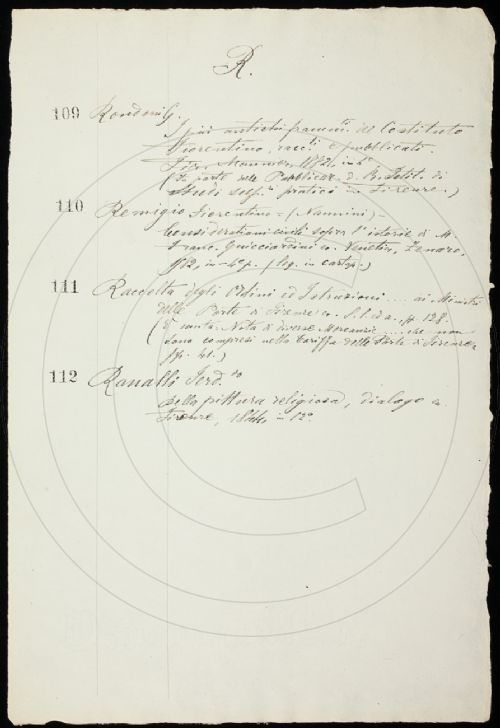 R.
109 Rondoni G.
I più antichi framm.ti del Costituto
Fiorentino, racc.ti e pubblicato.
Fir. Monnier, 1882. in 8°
(Fa parte delle Pubblicaz. d. R. Istit. di
Studi sup.ri pratici in Firenze.)
110 Remigio Fiorentino = (Nannini) -
Considerationi civili sopra l'istorie di M.
Franc. Guicciardini ec. Venetia, Zenaro,
1582, in-4° p. (leg. in cartap.)
111 Raccolta degli Ordini ed Istruzioni .... ai Ministri
delle Porte di Firenze ec. S. l. ed a., pp. 128.
(È unita: Nota di diverse Mercanzie .... che non
sono compresi nella tariffa delle Porte di Firenze
pp. 41.)
112 Ranalli Ferd.do
Della pittura religiosa, dialogo ec.
Firenze, 1844, in 12°